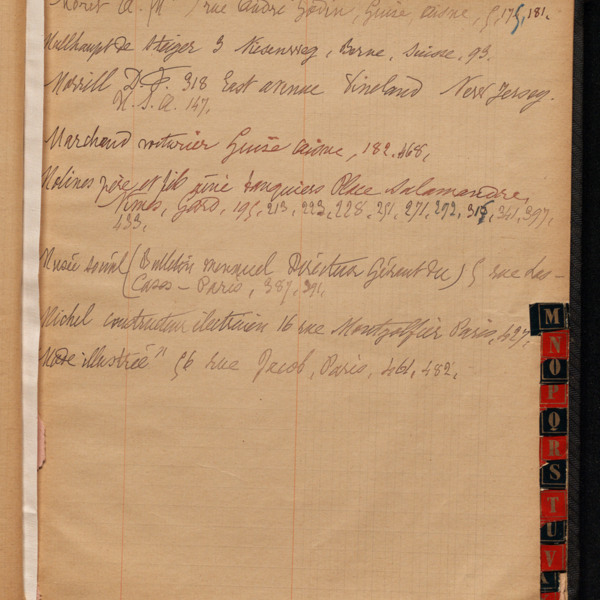 Moret A. Mr 1 rue André Godin, Guise, Aisne, 5, 175, 181.
Mullhaupt de Steiger 3 Kirchweg, Berne, Suisse, 93.
Morrill D. F. 318 East avenue Vineland New Jersey.
U. S. A. 147.
Marchand voiturier Guise Aisne, 182, 468,
Molines père et fils aîné banquiers Place Salamandre,
Nîmes, Gard, 195, 213, 223, 228, 251, 271, 272, 315, 341, 397,
433,
Musée social (Bulletin mensuel Directeur Gérant du) 5 rue Las-
Cases - Paris, 387, 391,
Michel constructeur électricien 16 rue Montgolfier Paris, 427,
Mode illustrée" 56 rue Jacob, Paris, 461, 482,
M
N
O
P
Q
R
S
T
U
V